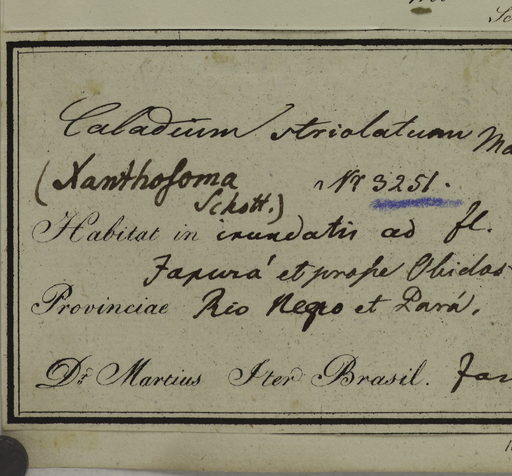 Caladium striolatum Ma
(Xanthosoma Nr 3251.
Schott.)
Habitat in inundatis ad fl.
Japurá et prope Obidos
Provinciae Rio Negro et Pará.
Dr Martius Iter Brasil. Jan